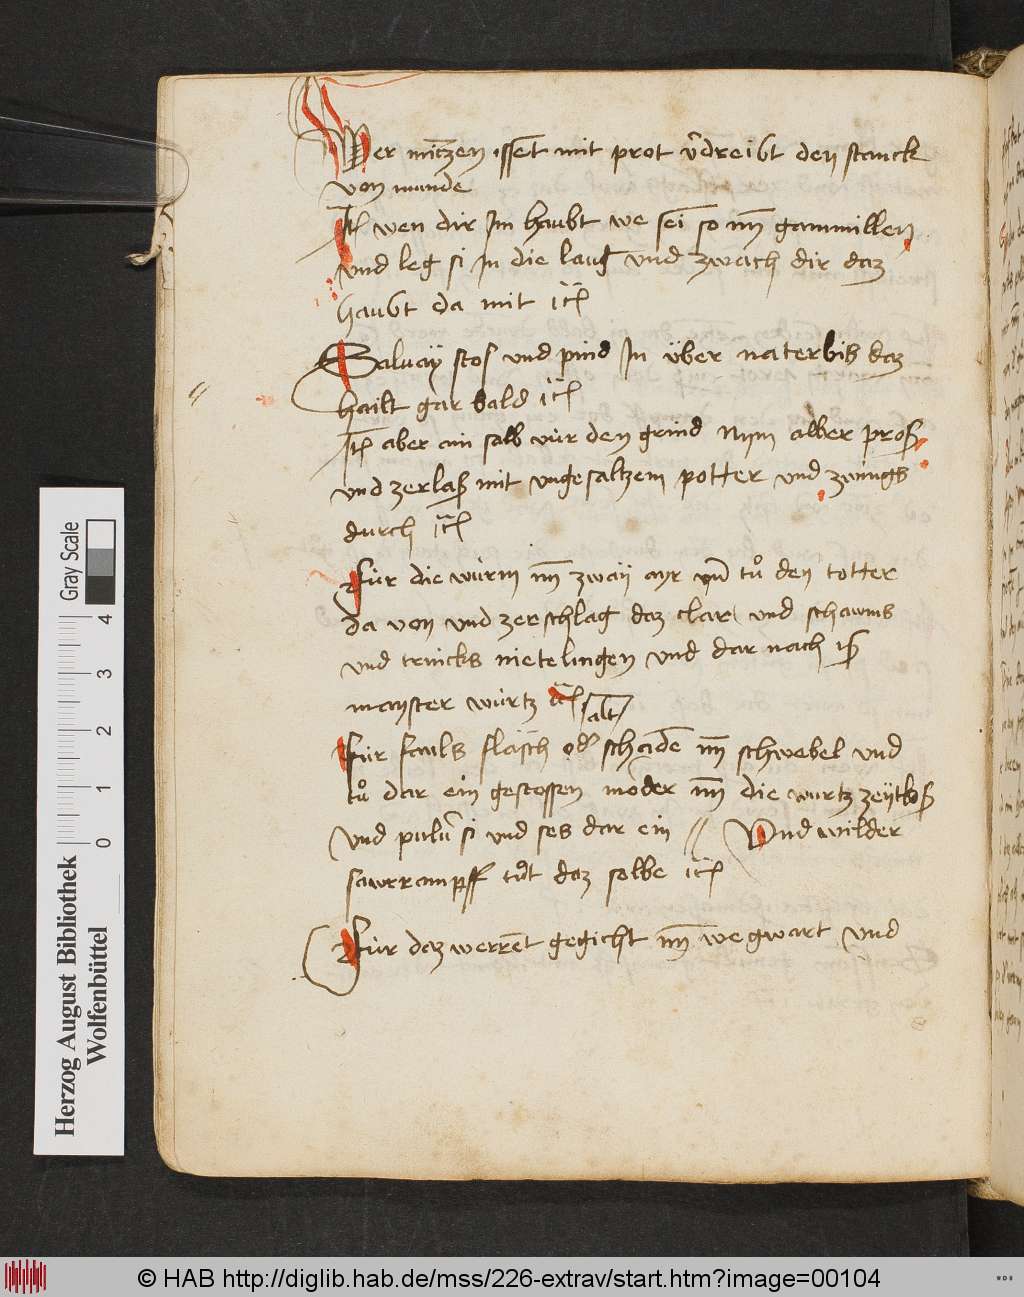 Wer mintzen isset mit prot v̄dreibt den stanck
von munde
Itē wen dir Im haubt we sei so nīm gammillen
und leg si In die laug und zwach dir daz
haubt da mit itē
Saluay stos und pind In über naterbis daz
hailt gar bald itē
Itē aber ain salb vür den grind Nym alber pross
und zerlass mit ungesaltzem potter und zwings
durch itē
Für die würm nīm zwaÿ ayr vn̄ tů den totter
da von und zerschlag daz clar und schawms
und trincks nietelingen und dar nach iss
mayster würtz itē
alt
Für fauls fläsch od' schadē nīm schwebel und
tů dar ein gestossen nīm die wurtz zeÿtloss
und pulv̄ si und ses dar ein // Und wilder
sawrrampff tůt daz selbe itē
Für daz werrēt gegicht nīm wegwart und
Gray Scale
4
3
2
1
0
Herzog August Bibliothek
Wolfenbüttel
© HAB http://diglib.hab.de/mss/226-extrav/start.htm?image=00104